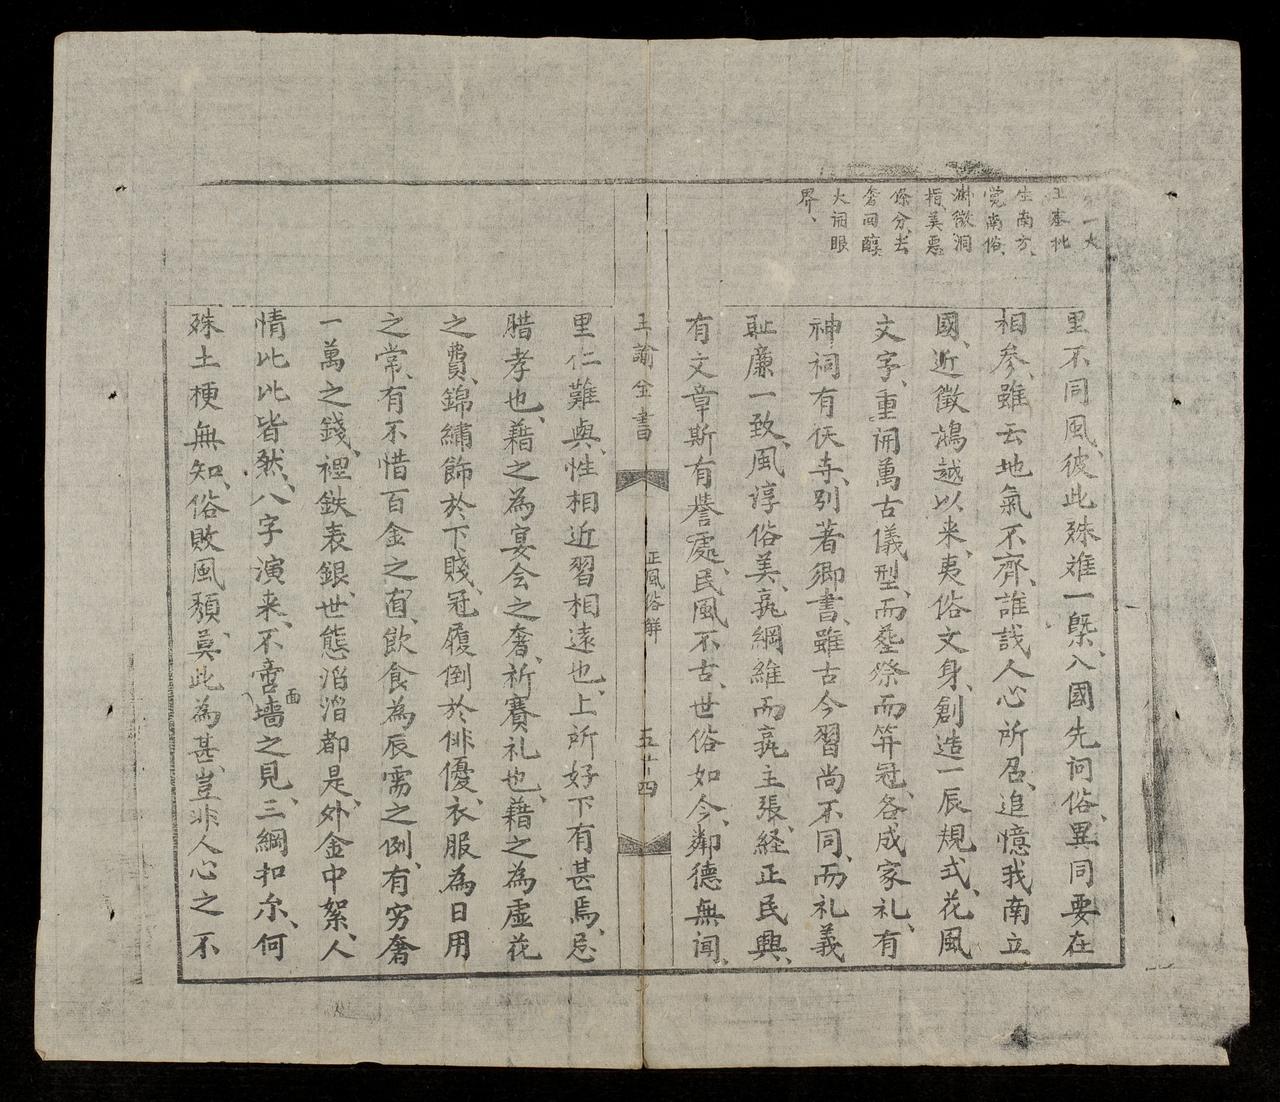 一大
生南方、
覚南俗、
淋微洞
指美悪
條分、出
大洞眼
界、
里不同風、彼此殊難一槩、入國先问俗、異同要在
相参、雖云地氣不齊、誰誘人心所召、追憶我南立
國、近徵鴻越以来、夷俗文身、創造一辰規式、花風
文字、重開萬古儀型、而塟祭而笄冠、各成家礼、有
神祠有仸寺、別著鄉書、雖古今習尚不同、而礼義
耻廉一致、風淳俗美、孰綱維而孰主張、経正民興、
有文章斯有誉處、民風不古、世俗如今、鄰德無闻、
王諭全書
正風俗解
五十四
里仁難與、性相近習相遠也、上所好下有甚焉、忌
腊孝也、藉之為宴会之奢、祈賽礼也、藉之為虚花
之費、錦繡飾於下賤、冠履倒於俳優、衣服為日用
之常、有不惜百金之直、飲食為辰需之例、有穷奢
一萬之錢、裡鉄表銀、世態滔滔都是、外金中絮、人
情比比皆然、八字演来、不啻面墻之見、三綱扣尔、何
殊土梗無知、俗敗風頽、莫此為甚、豈非人心之不